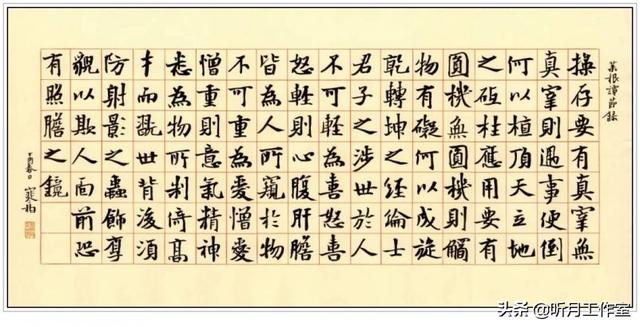 菜根譚節錄
操存要有真宰無
真宰則遇事便倒
何以植頂天立地
之砥柱應用要有
圓機無圓機則觸
物有礙何以成旋
乾轉坤之經綸士
君子之涉世於人
不可輕為喜怒喜
怒輕則心腹肝膽
皆為人所窺於物
不可重為愛憎愛
憎重則意氣精神
悉為物所制倚高
才而翫世背後須
防射影之蟲飾厚
貌以欺人面前恐
有照膽之鏡
丁酉春日
头条 @听月工作室